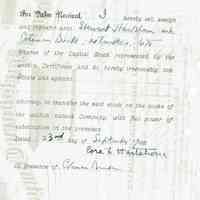 For Value Received, I hereby sell, assign
and transfer unto Stewart
Shares of the Capital Stock represented by the
within Certificate and do hereby irrevocably con-
stitute and appoint
Attorney to transfer the said stock on the books of
the within named Company, with full power of
substitution in the premises
Dated 23rd day of September 19
Cora L. Hartshorn
In presence of